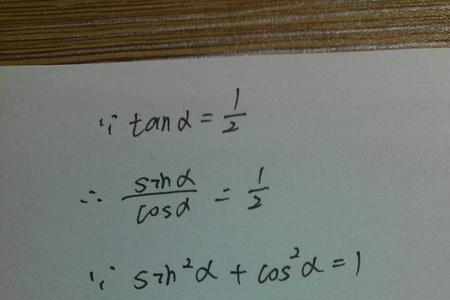 ∵ tanα = 1/2
∴ sinα/cosα = 1/2
∵ sin²α + cos²α = 1